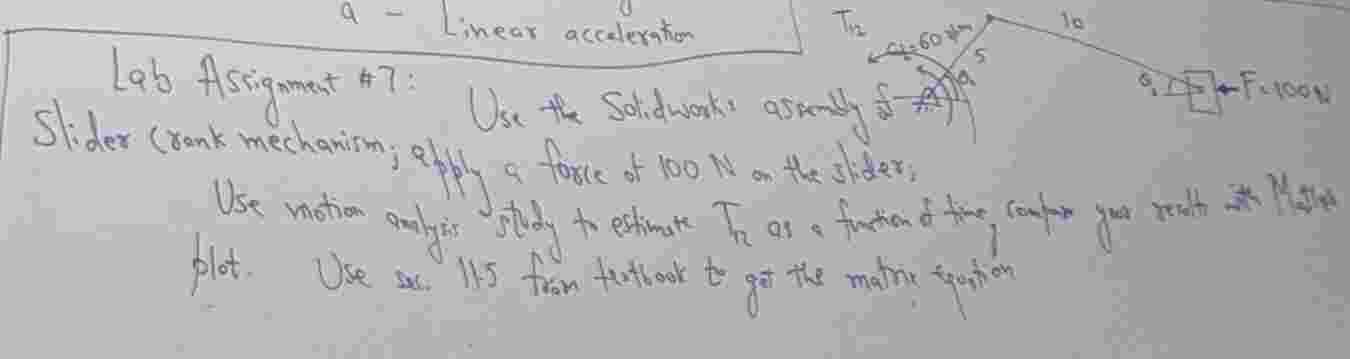 a - Linear acceleration
T12
α=60 rpm
5
10
F=100N
Lab Assignment #7:
Use the Solidworks assembly of
Slider Crank mechanism; apply a force of 100 N on the slider;
Use motion analysis study to estimate T12 as a function of time, compare your results with Matlab
plot. Use sec. 11.5 from textbook to get the matrix equation